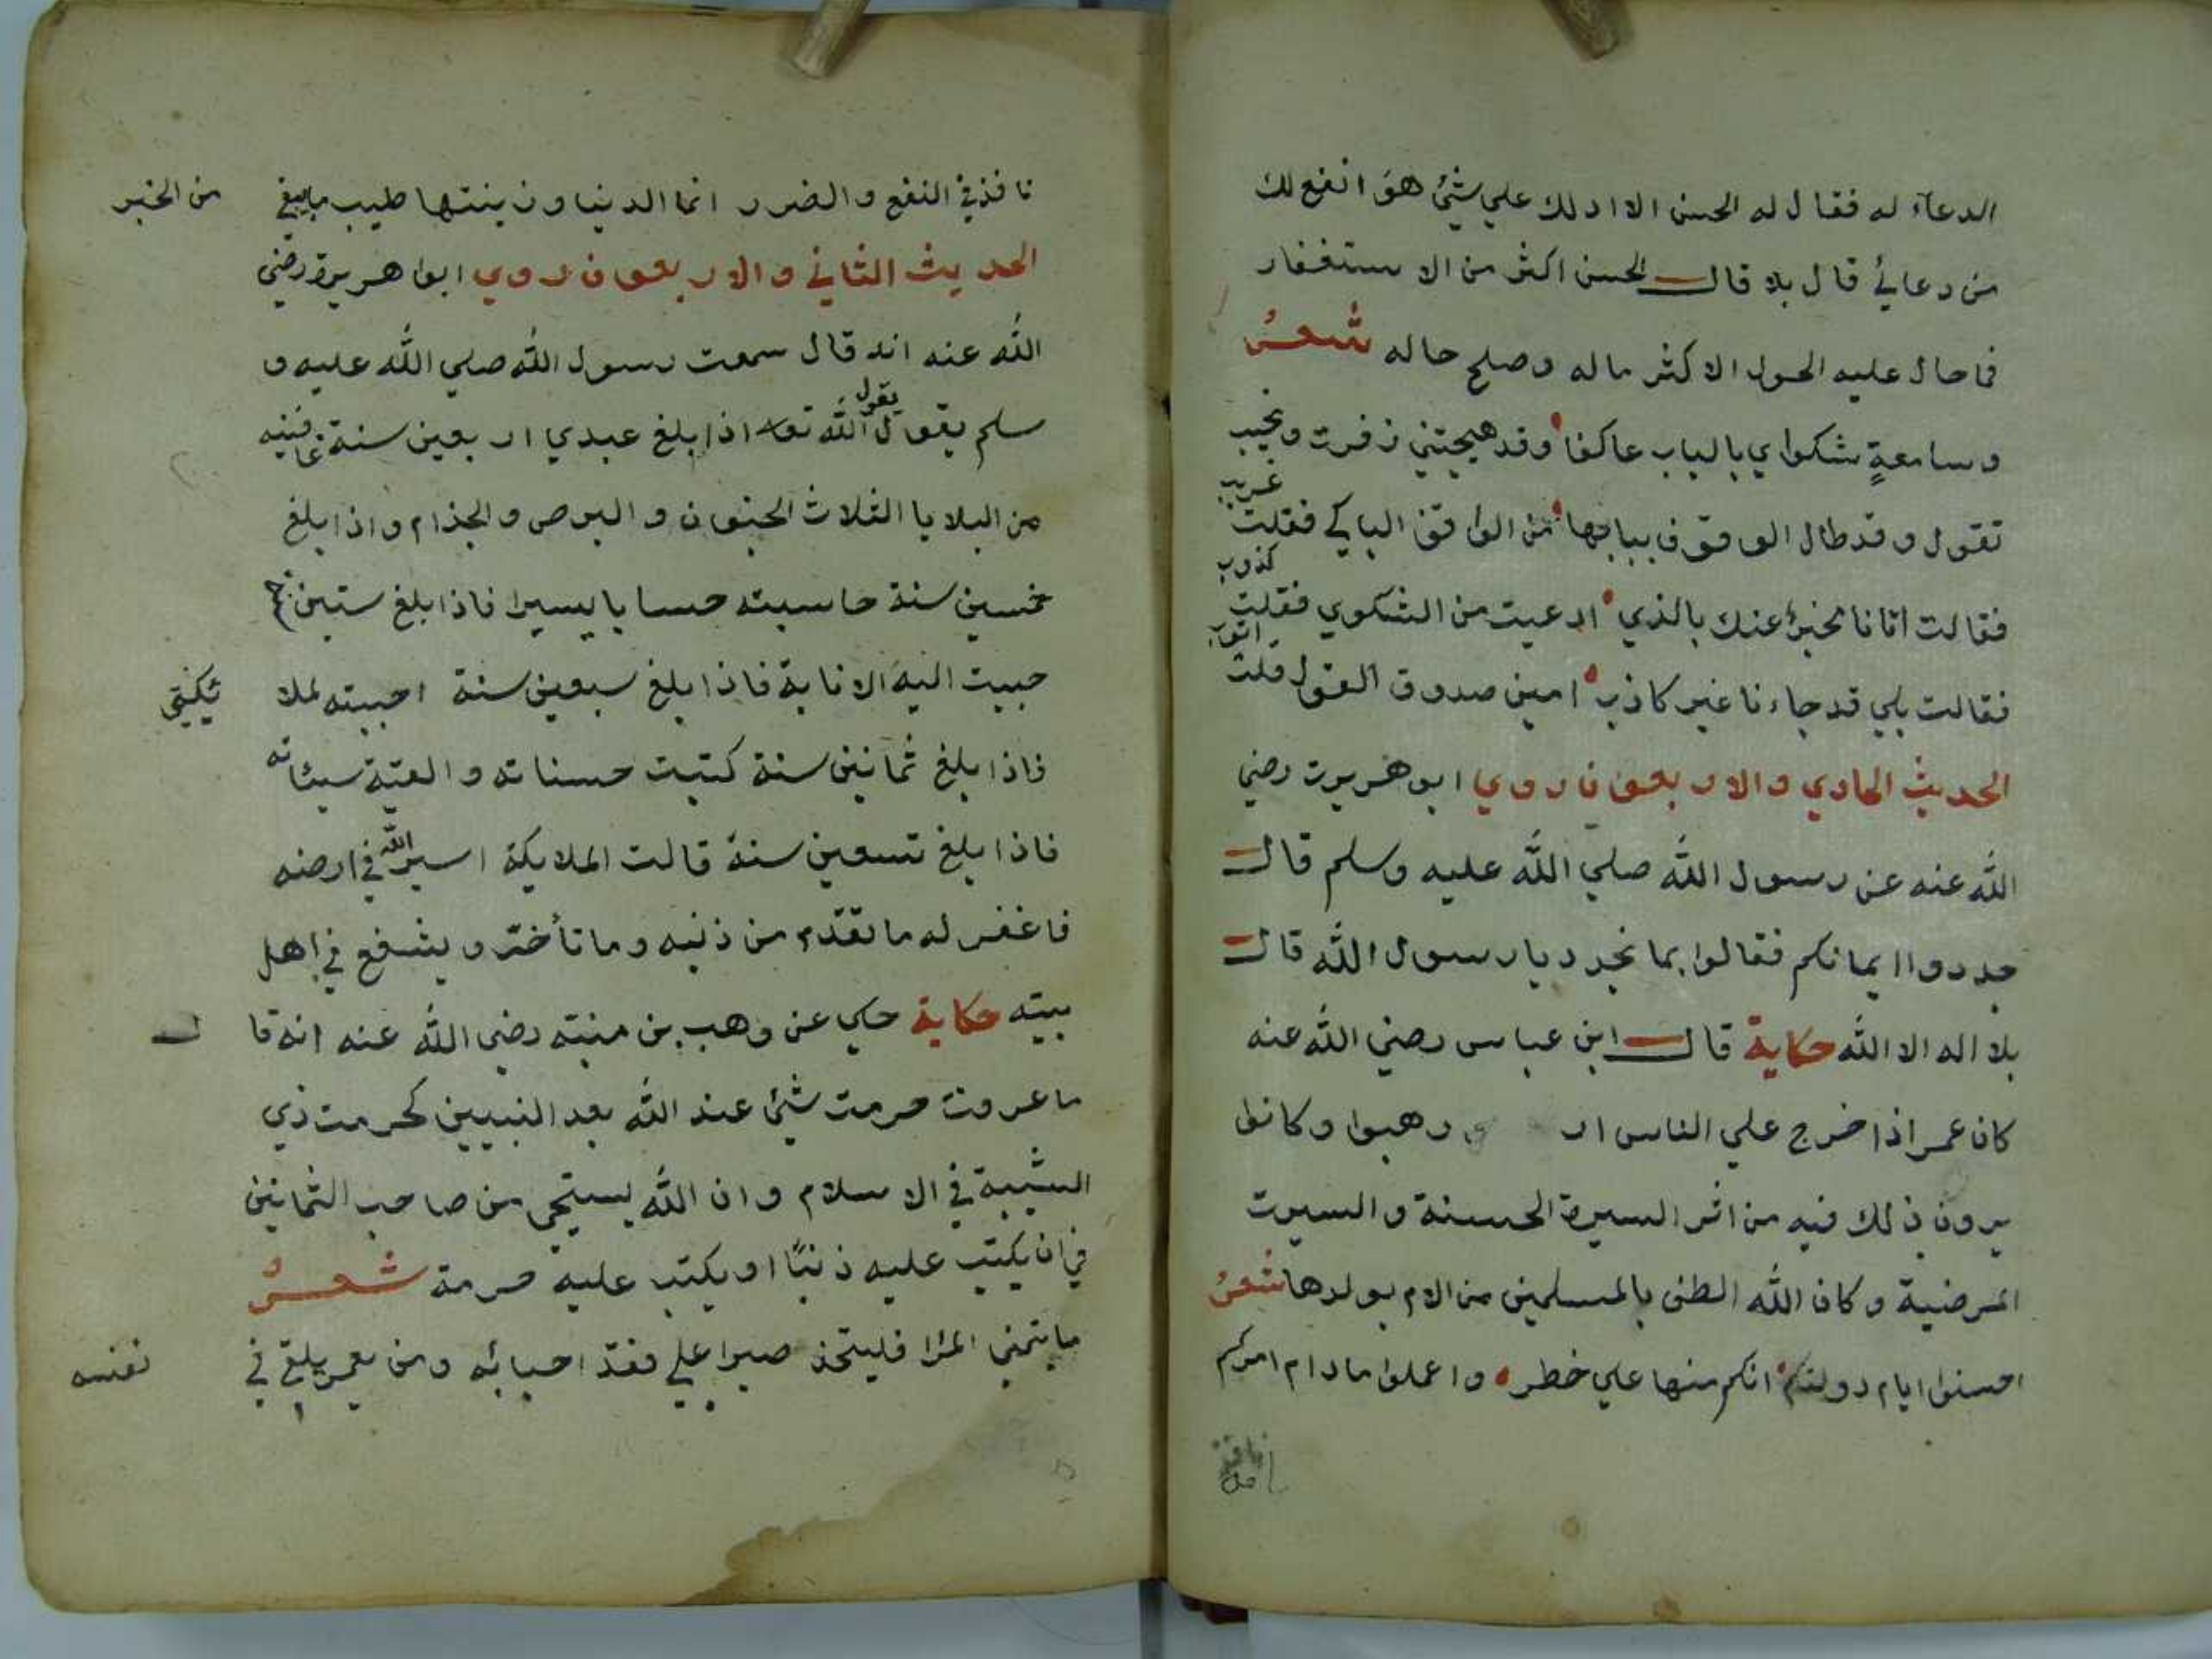 الدعآء له فقال له الحسن الا ادلك علي شيئ هو انفع لك
من دعائي قال بلا قال الحسن اكثر من الاستغفار
فما حال عليه الحول الا كثر ماله وصلح حاله شعر
وسامعةٍ شكواي بالباب عاكفا وقد هيجتني زفرت ونحيب
تقول وقد طال الوقوف ببابها من الواقف الباكي فقلت غريب
فقالت اتانا مخبر عنك بالذي ادعيت من الشكوي فقلت كذوب
فقالت بلي قد جاءنا غير كاذب امين صدوق القول قلت اتوب
الحديث الحادي والاربعون روي ابو هريرت رضي
الله عنه عن رسول الله صلي الله عليه وسلم قال
جددوا ايمانكم فقالوا بما نجدد يا رسول الله قال
بلا اله الا الله حكاية قال ابن عباس رضي الله عنه
كان عمر اذا خرج علي الناس ار رهبوا وكانوا
يرون ذلك فيه من اثر السيرة الحسنة والسيرت
المرضية وكان الله الطف بالمسلمين من الام بولدها شعر
احسنوا ايام دولتكم انكم منها علي خطر واعملوا مادام امركم
نافذ في النفع والضرر انما الدنيا وزينتها طيب ما يبقي من الخبر
الحديث الثاني والاربعون روي ابوا هريرة رضي
الله عنه انه قال سمعت رسول الله صلي الله عليه و
سلم يقول يقول الله تعا اذا بلغ عبدي اربعين سنة عافيته
من البلايا الثلاث الجنون والبرص والجذام واذا بلغ
خمسين سنة حاسبته حسابا يسيرا فاذا بلغ ستين
حببت اليه الانابة فاذا بلغ سبعين سنة احببته ملائكتي
فاذا بلغ ثمانين سنة كتبت حسناته والقية سيئاته
فاذا بلغ تسعين سنة قالت الملايكة اسير الله في ارضه
فاغفر له ما تقدّم من ذنبه وما تأخّر ويشفع في اهل
بيته حكاية حكي عن وهب بن منبّه رضي الله عنه انه قال
ما عرفت حرمت شيئ عند الله بعد النبيين كحرمت ذي
الشيبة في الاسلام وان الله ليستحي من صاحب الثمانين
في ان يكتب عليه ذنبًا او يكتب عليه حرمة شعر
ما يتمني المرا فليتخذ صبرا علي فقد احبابه ومن يعمر يلق في نفسه